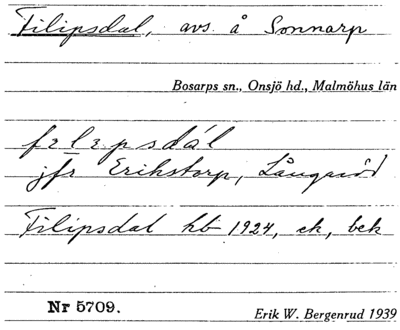 Filipsdal, avs. å Sonnarp
Bosarps sn., Onsjö hd., Malmöhus län
fɪlɪpsdál
jfr Erikstorp, Långaröd
Filipsdal hb 1924, ek, bek
Nr 5709.
Erik W. Bergenrud 1939